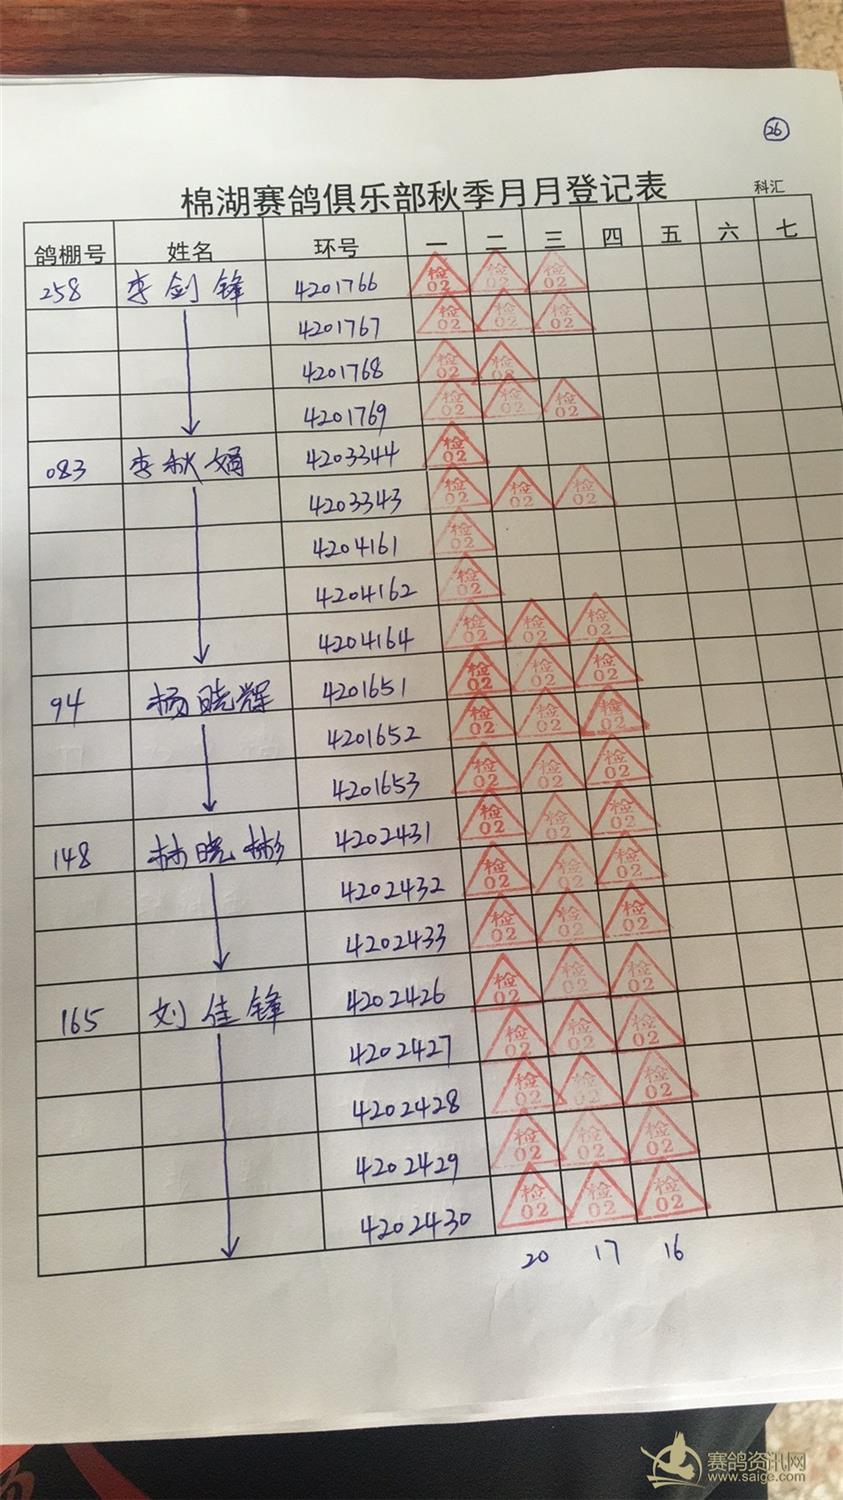 26
棉湖赛鸽俱乐部秋季月月登记表 科汇
鸽棚号 姓名 环号 一 二 三 四 五 六 七
258 李剑锋 4201766 检02 检02 检02
4201767 检02 检02 检02
4201768 检02 检02
4201769 检02 检02 检02
083 李秋娟 4203344 检02
4203343 检02 检02 检02
4204161 检02
4204162 检02
4204164 检02 检02 检02
94 杨晓辉 4201651 检02 检02 检02
4201652 检02 检02 检02
4201653 检02 检02 检02
148 林晓彬 4202431 检02 检02 检02
4202432 检02 检02 检02
4202433 检02 检02 检02
165 刘佳锋 4202426 检02 检02 检02
4202427 检02 检02 检02
4202428 检02 检02 检02
4202429 检02 检02 检02
4202430 检02 检02 检02
20 17 16
赛鸽资讯网
www.saige.com